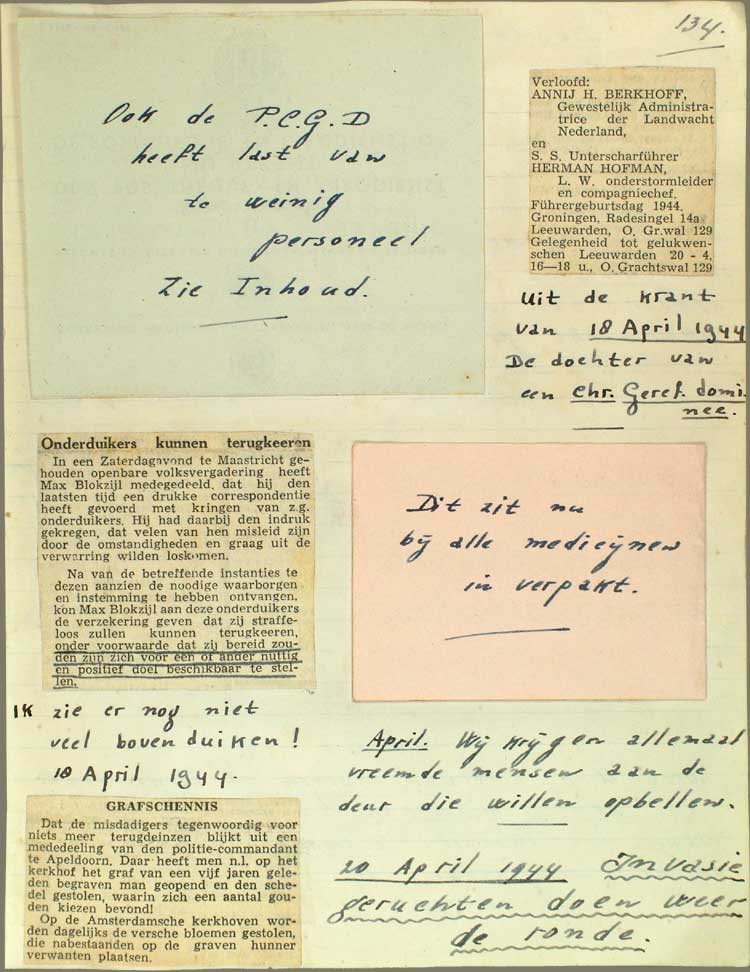 134.
Ook de P.C.G.D
heeft last van
te weinig
personeel
Zie Inhoud.
Verloofd:
ANNIJ H. BERKHOFF,
Gewestelijk Administra-
trice der Landwacht
Nederland,
en
S. S. Unterscharführer
HERMAN HOFMAN,
L. W. onderstormleider
en compagniechef,
Führergeburtsdag 1944.
Groningen, Radesingel 14a
Leeuwarden, O. Gr.wal 129
Gelegenheid tot gelukwen-
schen Leeuwarden 20 - 4,
16—18 u., O. Grachtswal 129
Uit de krant
van 18 April 1944
De dochter van
een Chr. Geref. domi-
nee.
Onderduikers kunnen terugkeeren
In een Zaterdagavond te Maastricht ge-
houden openbare volksvergadering heeft
Max Blokzijl medegedeeld, dat hij den
laatsten tijd een drukke correspondentie
heeft gevoerd met kringen van z.g.
onderduikers. Hij had daarbij den indruk
gekregen, dat velen van hen misleid zijn
door de omstandigheden en graag uit de
verwarring wilden loskomen.
Na van de betreffende instanties te
dezen aanzien de noodige waarborgen
en instemming te hebben ontvangen,
kon Max Blokzijl aan deze onderduikers
de verzekering geven dat zij straffe-
loos zullen kunnen terugkeeren,
onder voorwaarde dat zij bereid zou-
den zijn zich voor een of ander nuttig
en positief doel beschikbaar te stel-
len.
Ik zie er nog niet
veel boven duiken!
18 April 1944.
Dit zit nu
bij alle medicijnen
in verpakt.
April. Wij krijgen allemaal
vreemde mensen aan de
deur die willen opbellen.
20 April 1944 Invasie
geruchten doen weer
de ronde.
GRAFSCHENNIS
Dat de misdadigers tegenwoordig voor
niets meer terugdeinzen blijkt uit een
mededeeling van den politie-commandant
te Apeldoorn. Daar heeft men n.l. op het
kerkhof het graf van een vijf jaren gele-
den begraven man geopend en den sche-
del gestolen, waarin zich een aantal gou-
den kiezen bevond!
Op de Amsterdamsche kerkhoven wor-
den dagelijks de versche bloemen gestolen,
die nabestaanden op de graven hunner
verwanten plaatsen.